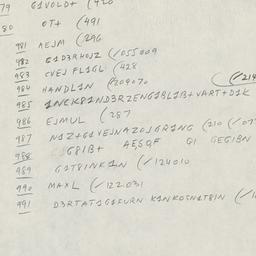 79 G1VOLD+ (420
80 OT+ (491
981 AEJM (296
982 G1D3RHOJZ (/055009
983 CVEJ FL1GL (428
984 HANDL1N (/209070
985 1NCK81ND3RZENG1BL1B+VART+D1K (/214
986 EJMUL (287
987 N1Z+G1VEJNAZOJGR1NG (210 (/07
988 G8IB+ AESQF QI GEGIBN
989 G1T8INK1N (/124010
990 MAXL (/122031
991 D3RTAT1G8FURN K1NKOSNT81N